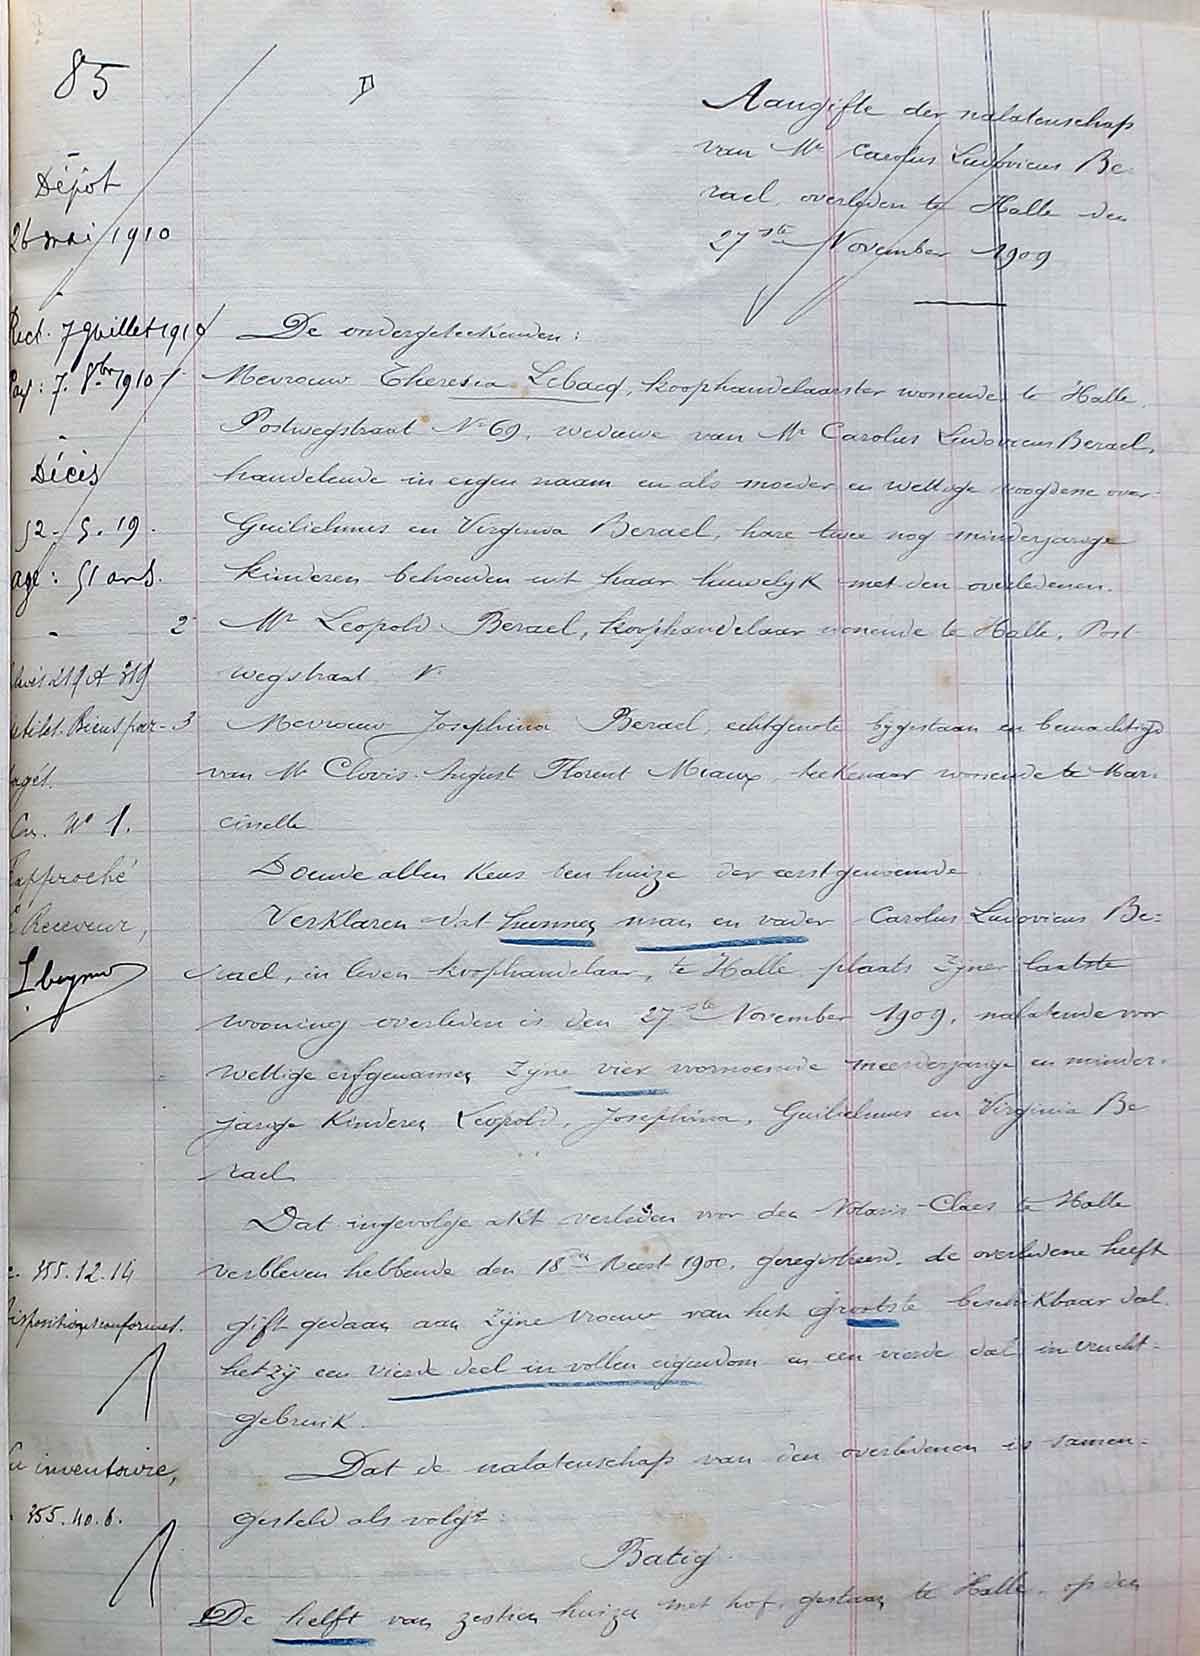 85
Dépôt
26 mai 1910
Rect. 7 Juillet 1910
Pay: 7. 8bre 1910
Décès
52 - 5. 19.
age: 51 ans.
219 et 319
Biens par-
tagés.
Cn. No 1.
Rapproché
Le Receveur,
355.12.14
Dispositions conformes.
inventaire,
355.40.6.
Aangifte der nalatenschap
van Mr Carolus Ludovicus Be-
rael, overleden te Halle den
27ste November 1909
De ondergeteekenden:
Mevrouw Theresia Lebacq, koophandelaarster wonende te Halle,
Postwegstraat No 69, weduwe van Mr Carolus Ludovicus Berael,
handelende in eigen naam en als moeder en wettige voogdesse over
Guilielmus en Virginia Berael, hare twee nog minderjarige
kinderen behouden uit haar huwelijk met den overledenen.
2 Mr Leopold Berael, koophandelaar wonende te Halle, Post-
wegstraat N.
3 Mevrouw Josephina Berael, echtgenote bygestaan en bemachtigd
van Mr Clovis August Florent Meaux, teekenaar wonende te Mar-
cinelle
Doende allen keus ten huize der eerstgenoemde
Verklaren dat hunnen man en vader Carolus Ludovicus Be=
rael, in leven koophandelaar, te Halle plaats zyner laatste
wooning overleden is den 27ste November 1909, nalatende voor
wettige erfgenamen zyne vier voornoemde meerderjarige en minder-
jarige kinderen Leopold, Josephina, Guilielmus en Virginia Be
rael
Dat ingevolge akt verleden voor den Notaris Claes te Halle
verbleven hebbende den 18 Meert 1900, geregistreerd, de overledene heeft
gift gedaan aan zyne vrouw van het grootste beschikbaar deel
hetzij een vierde deel in vollen eigendom en een vierde deel in vrucht-
gebruik.
Dat de nalatenschap van den overledenen is samen-
gesteld als volgt:
Batig.
De helft van zestien huizen met hof, gestaan te Halle, op den